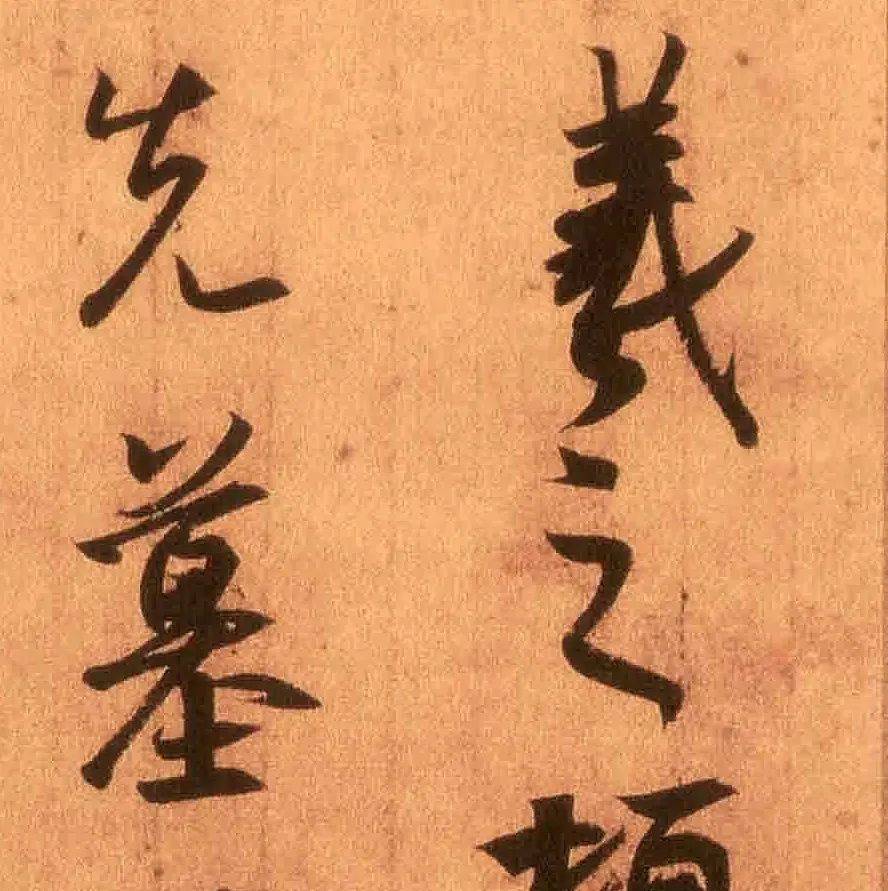 羲之頓
先墓